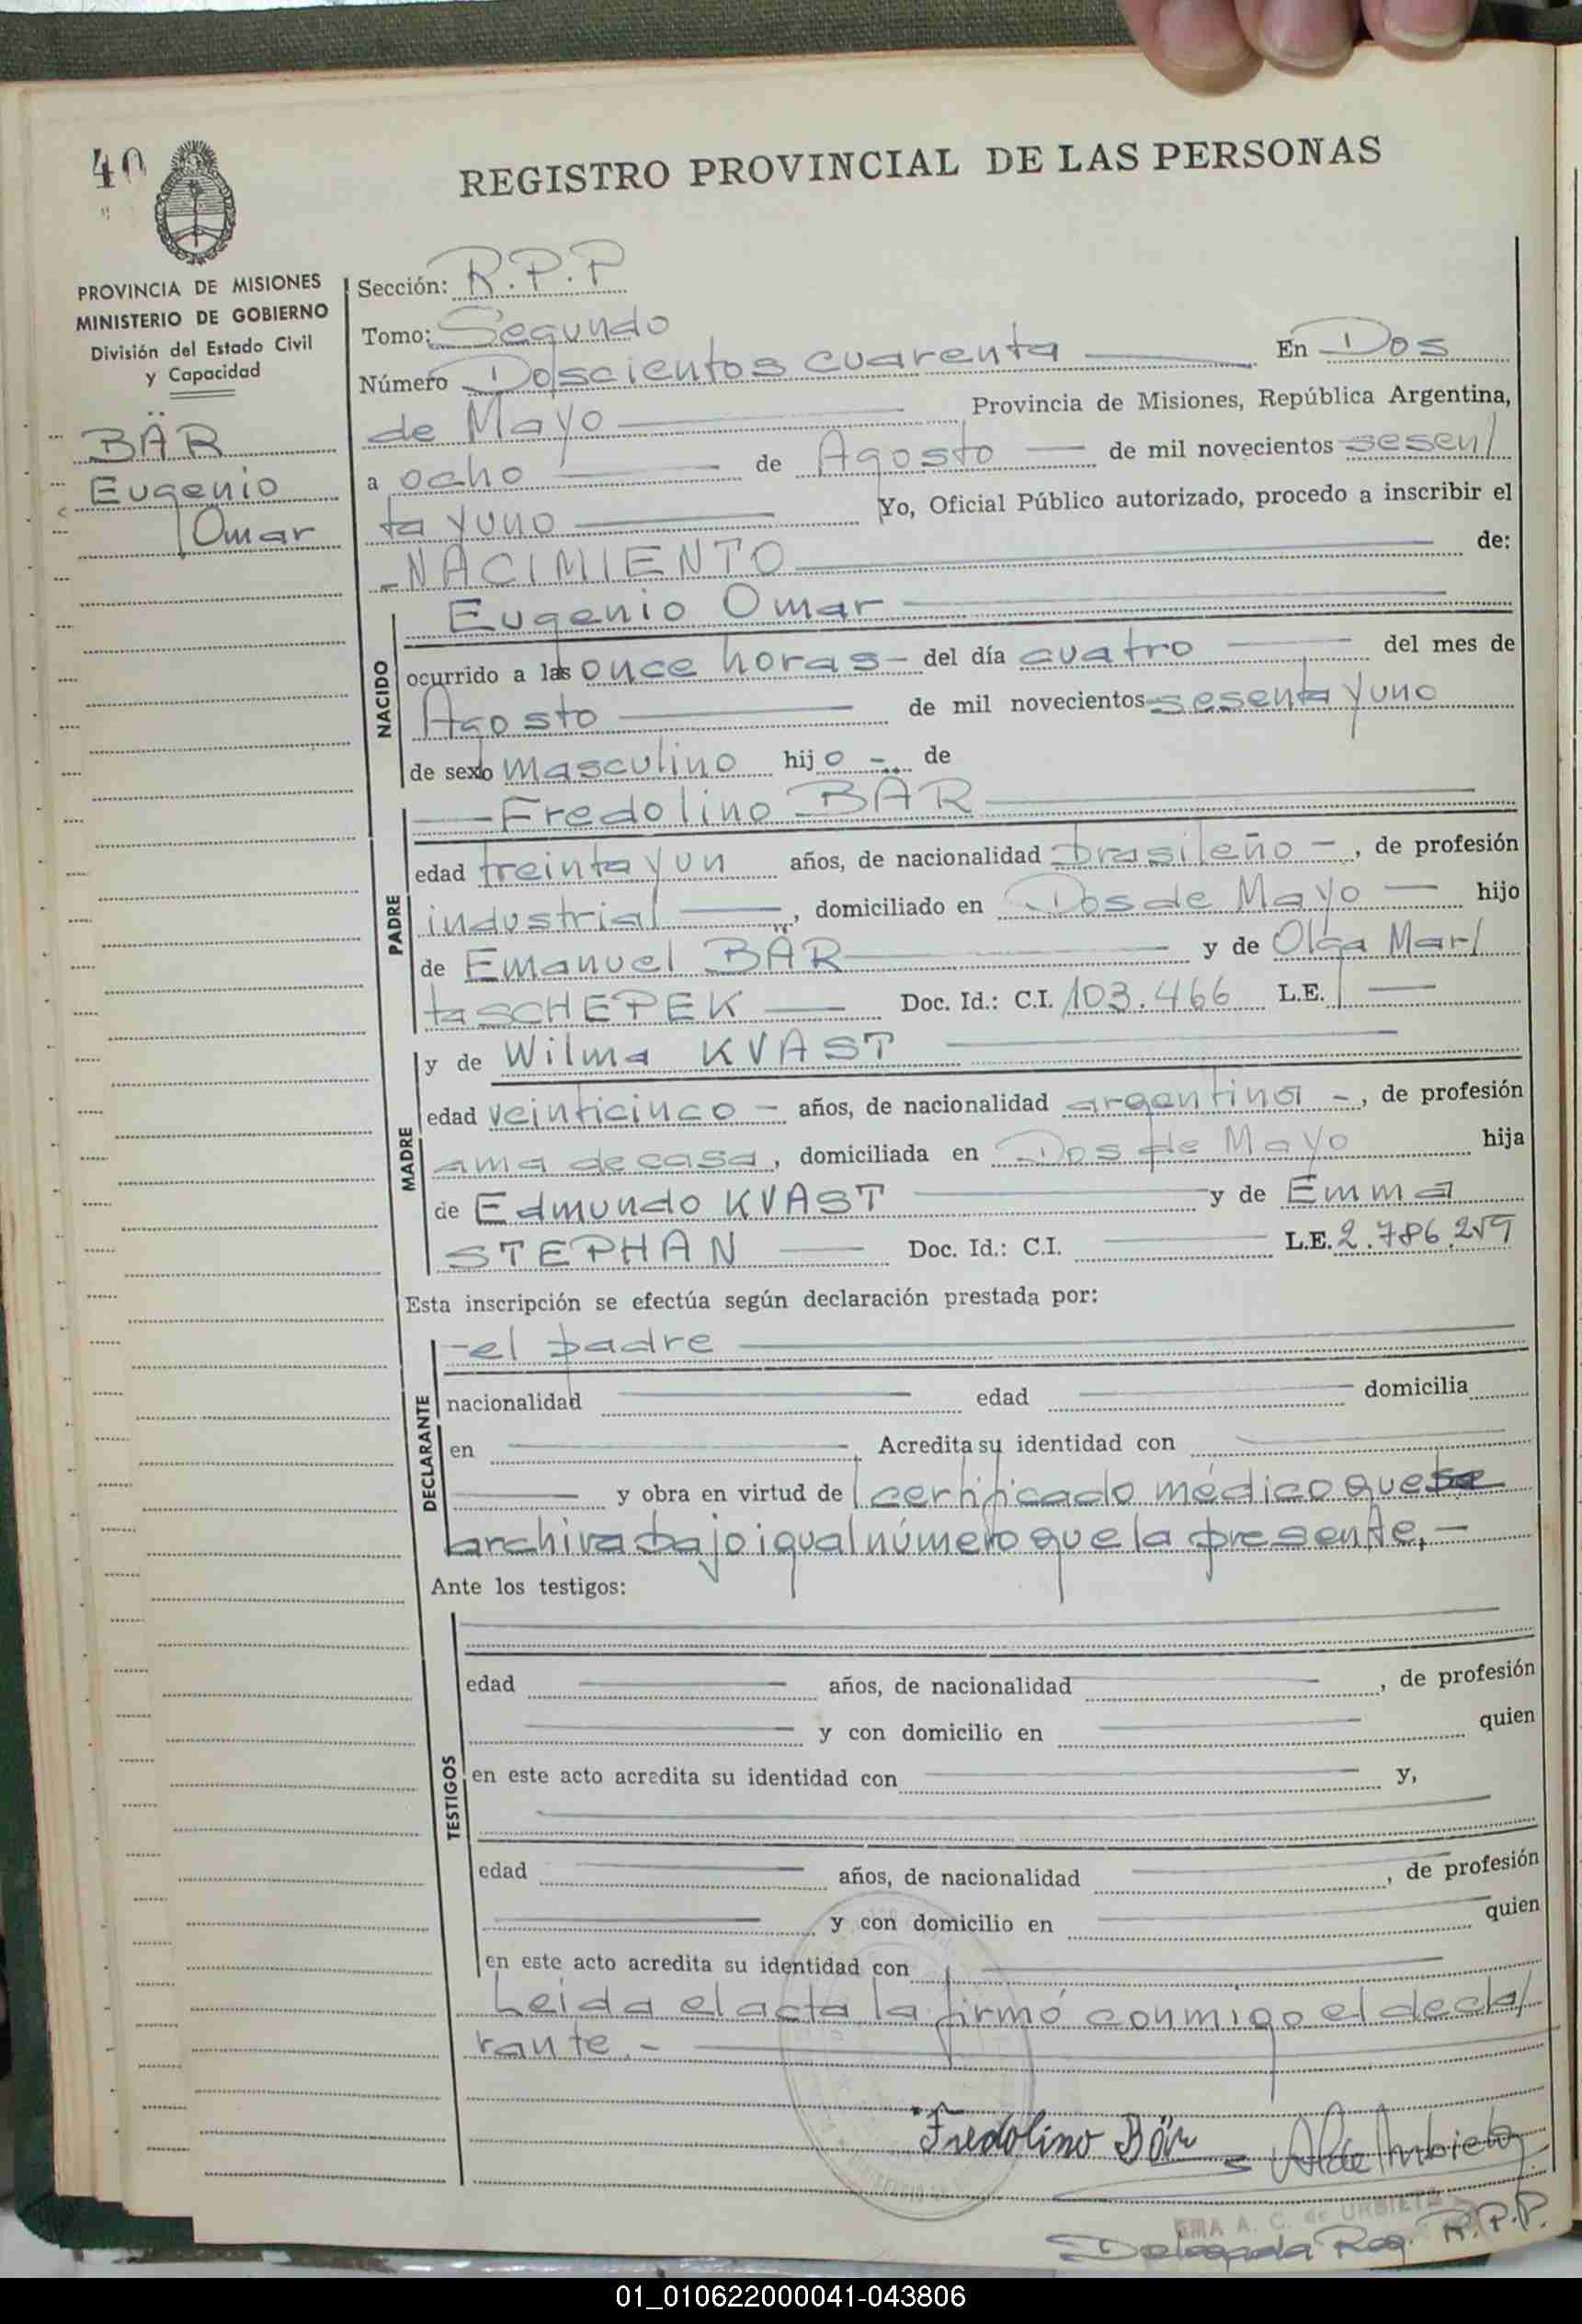 40
REGISTRO PROVINCIAL DE LAS PERSONAS
PROVINCIA DE MISIONES
MINISTERIO DE GOBIERNO
División del Estado Civil
y Capacidad
BÄR
Eugenio
Omar
Sección: R.P.P
Tomo: Segundo
Número Doscientos cuarenta En Dos
de Mayo Provincia de Misiones, República Argentina,
a ocho de Agosto de mil novecientos sesen/
ta y uno Yo, Oficial Público autorizado, procedo a inscribir el
-NACIMIENTO de:
NACIDO
Eugenio Omar
ocurrido a las once horas- del día cuatro del mes de
Agosto de mil novecientos sesenta y uno
de sexo masculino hijo -. de
PADRE
Fredolino BÄR
edad treinta y un años, de nacionalidad brasileño -, de profesión
industrial, domiciliado en Dos de Mayo hijo
de Emanuel BÄR y de Olga Mar/
ta SCHEPEK Doc. Id.: C.I. 103.466 L.E.
MADRE
y de Wilma KVAST
edad veinticinco - años, de nacionalidad argentina -, de profesión
ama de casa, domiciliada en Dos de Mayo hija
de Edmundo KVAST y de Emma
STEPHAN Doc. Id.: C.I. L.E. 2.786.259
Esta inscripción se efectúa según declaración prestada por:
DECLARANTE
-el padre
nacionalidad edad domicilia
en Acredita su identidad con
y obra en virtud de l certificado médico que se
archiva bajo igual número que la presente,-
Ante los testigos:
TESTIGOS
edad años, de nacionalidad, de profesión
y con domicilio en quien
en este acto acredita su identidad con y,
edad años, de nacionalidad, de profesión
y con domicilio en quien
en este acto acredita su identidad con
Leída el acta, la firmó conmigo el decla/
rante.-
Fredolino Bär
A. C. de URBIETA
Delegada Reg. R.P.P.
01_010622000041-043806